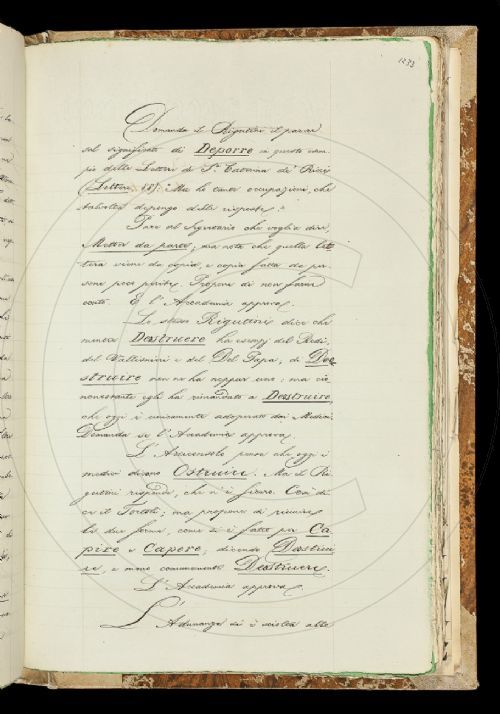 1233
Domanda il Rigutini il parere
sul significato di Deporre in questo esem-
pio delle Lettere di S.ta Caterina de' Ricci
(Lettera 48): Ma le tante occupazioni, che
talvolta depongo delle risposte.
Pare al Segretario che voglia dire,
Metter da parte; ma nota che quella let-
tera viene da copia, e copia fatta da per-
sone poco perite. Propone di non farne
conto. E l'Accademia approva.
Lo stesso Rigutini dice che
mentre Destruere ha esempj del Redi,
del Vallisnieri e del Del Papa, di De-
struire non ne ha neppur uno; ma ciò
nonostante egli ha rimandato a Destruire,
che oggi è unicamente adoperato dai Medici.
Domanda se l'Accademia approva.
L'Arciconsolo pensa che oggi i
medici dicano Ostruire. Ma il Ri-
gutini risponde, che n'è sicuro. Così di-
ce il Tortoli; ma propone di riunire
le due forme, come si è fatto per Ca-
pire e Capere; dicendo Destrui-
re, e meno comunemente Destruere.
L'Accademia approva.
L'Adunanza si è sciolta alle